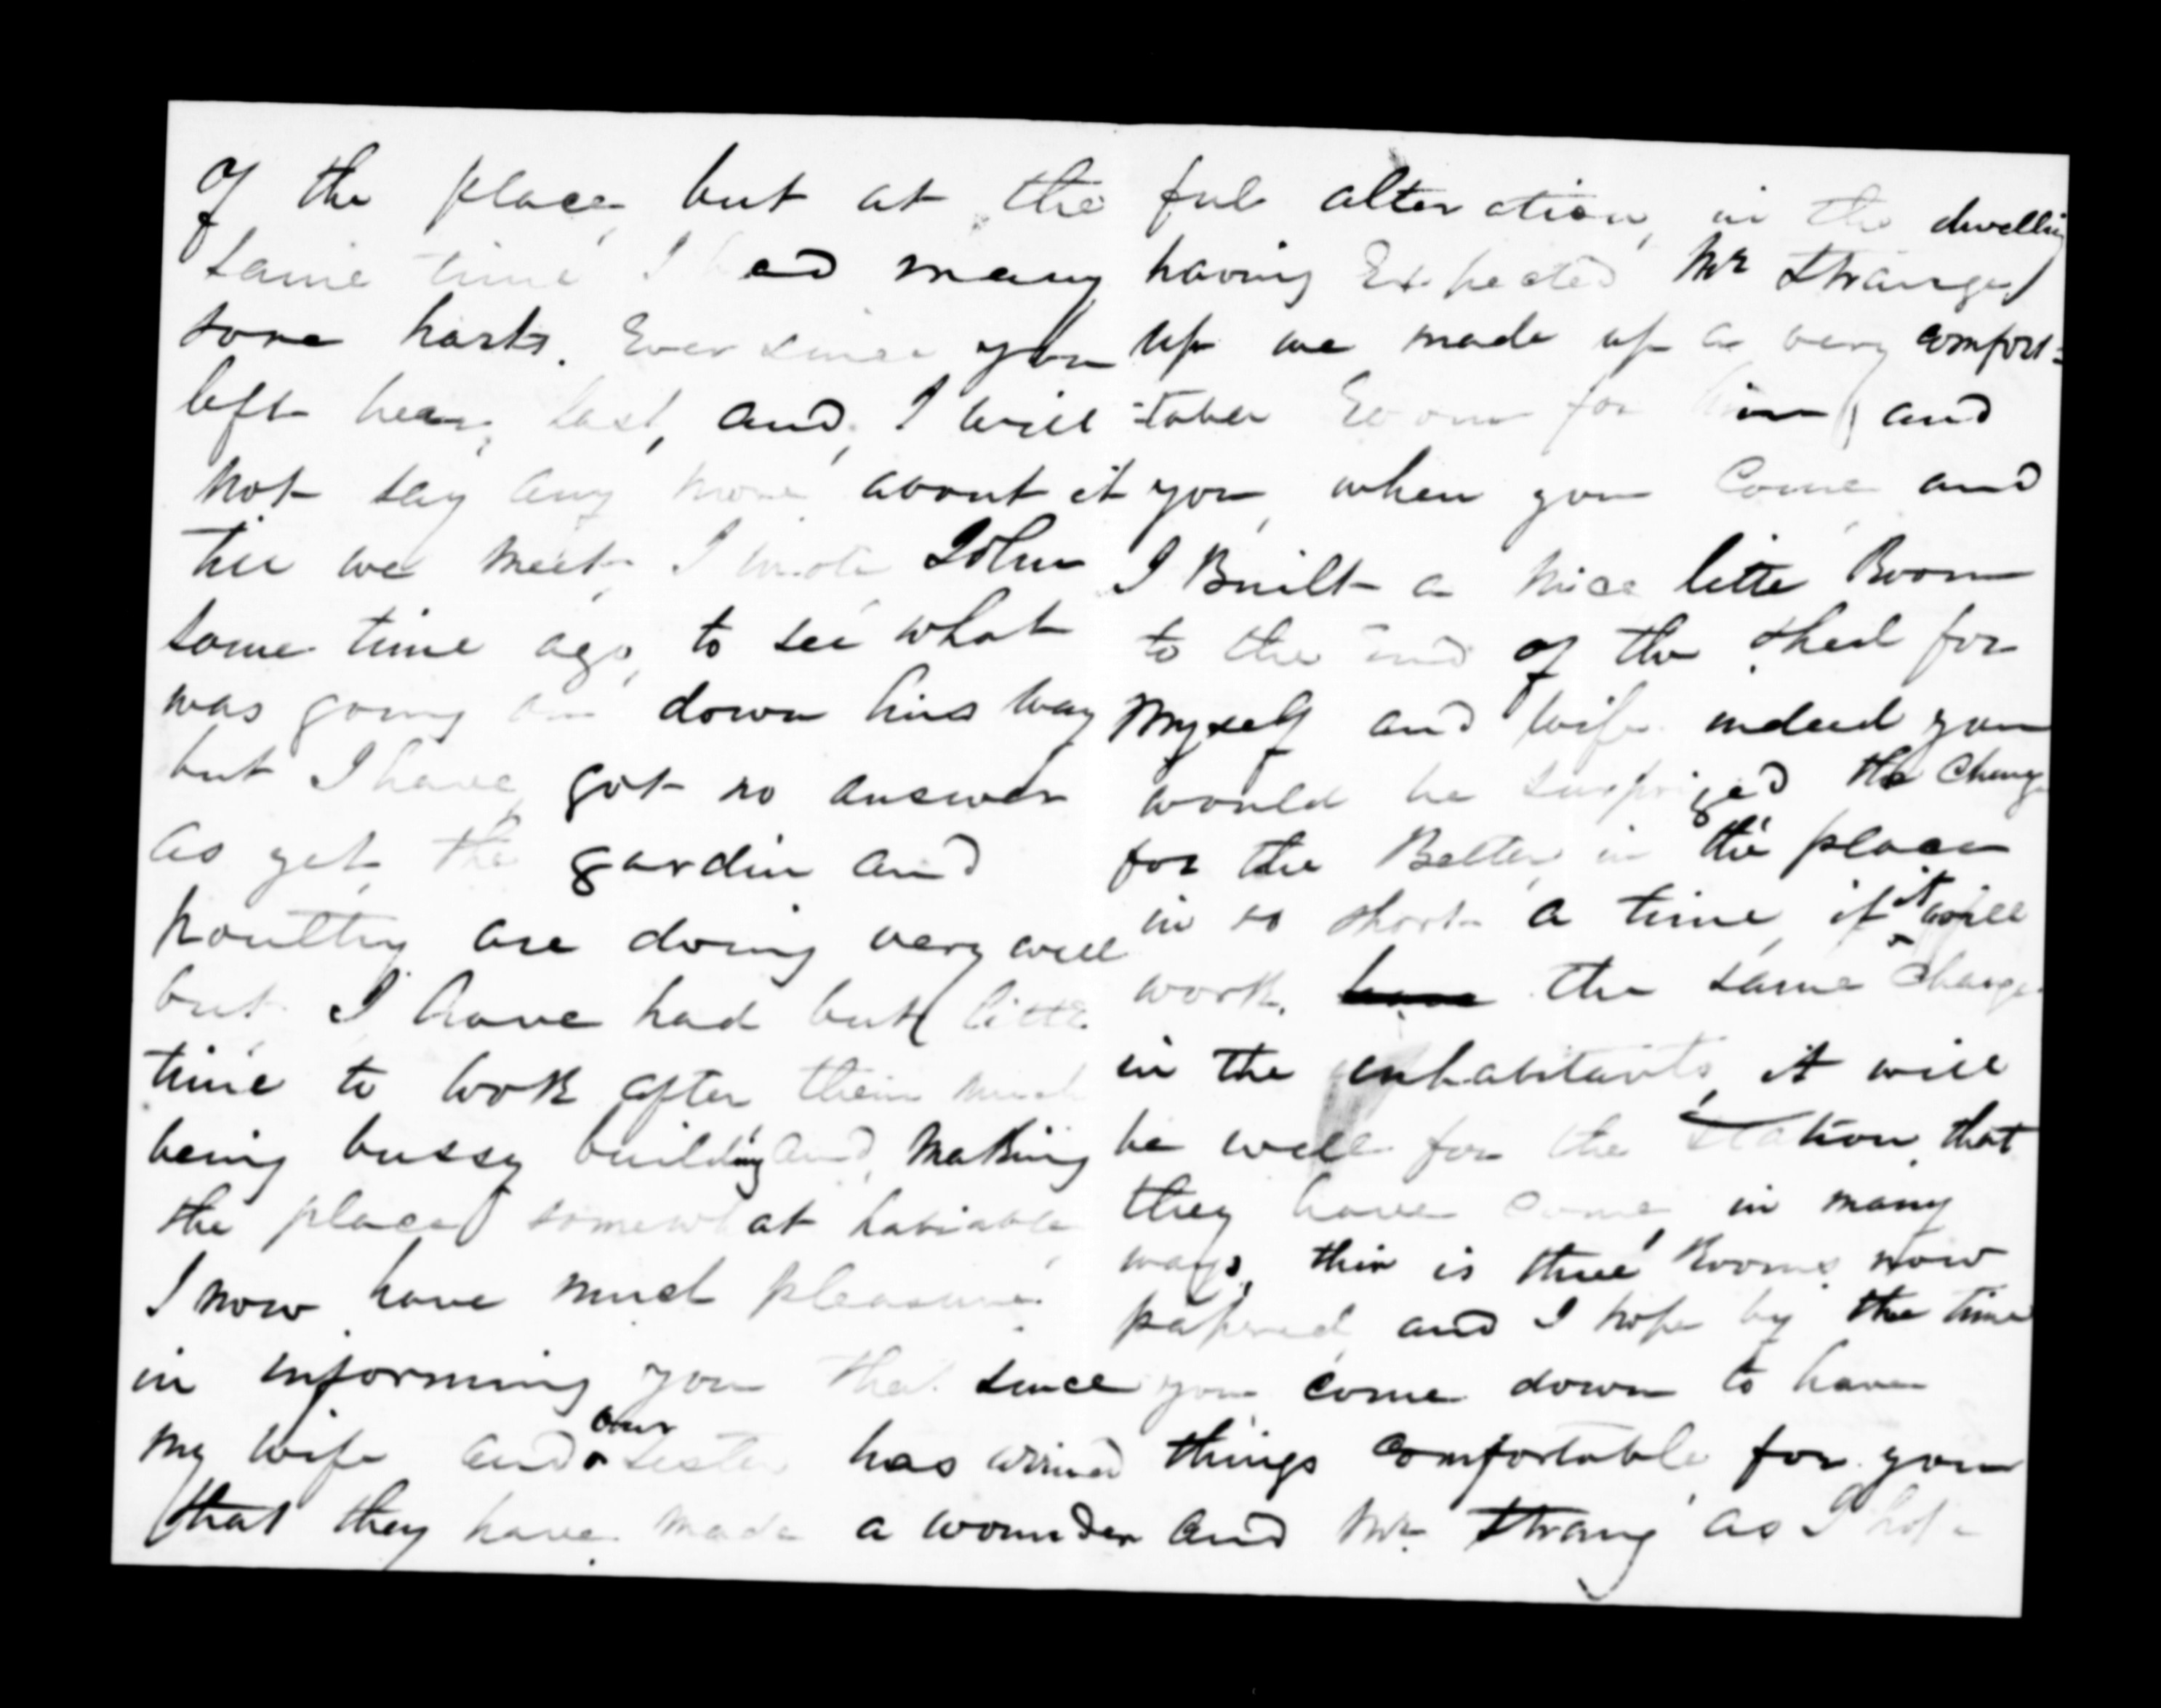 of the place, but at the
same time I had many
sore harts. Ever since you
left hear, last, and, I will
not say any more about it
till we meet, I wrote John
some time ago, to see what
was going on down his way
but I have, got no answer
as yet, the gardin and
poultry are doing very well
but I have had but little
time to look after them much
being bussy building and, making
the place somewhat habiable
I now have much pleasure
in informing you that since
my wife and our sister has arrived
that they have made a wounder
ful alteration, in the dwelling
having Expected Mr Strange
up we made up a very comfort=
=table Room for him, and
you, when you Come, and
I Built a nice litte Room
to the End of the shed for
Myself and wife indeed you
would be surprized the Change
for the Better, in the place
in so short a time, if it will
work, the same change
in the inhabitants, it will
be well for the Station, that
they have come, in many
ways, thir is three Rooms now
papered, and I hope by the time
you come down to have
things comfortable for you
and Mr. Strang as I hope